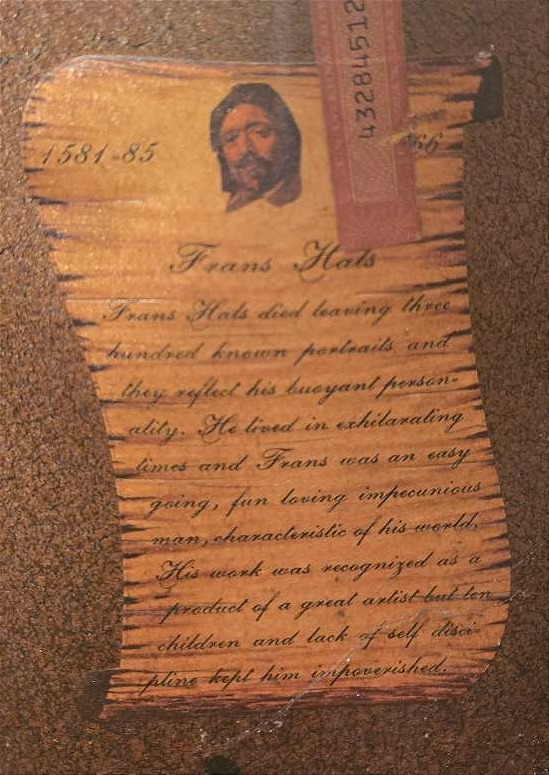 43284512
1581-85
66
Frans Hals
Frans Hals died leaving three
hundred known portraits and
they reflect his buoyant person-
ality. He lived in exhilarating
times and Frans was an easy
going, fun loving impecunious
man, characteristic of his world.
His work was recognized as a
product of a great artist but ten
children and lack of self disci-
pline kept him impoverished.